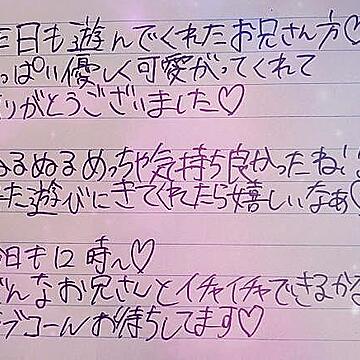 昨日も遊んでくれたお兄さん方♡
っぱい優しく可愛がってくれて
りがとうございました♡
ぬるぬるめっちゃ気持ち良かったね
た遊びにきてくれたら嬉しいなぁ♡
今日も12時〜♡
どんなお兄さんとイチャイチャできるか
コールお待ちしてます♡